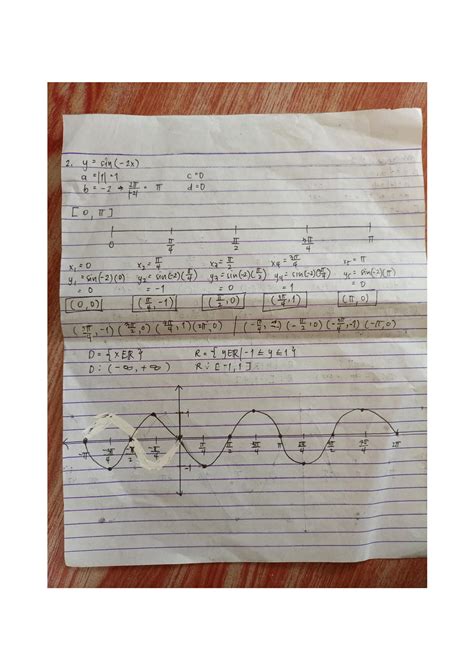 2. y = sin(-2x)
a = |1| = 1 c = 0
b = -2 → 2π/|-2| = π d = 0
[0, π]
0 π/4 π/2 3π/4 π
x₁ = 0 x₂ = π/4 x₃ = π/2 x₄ = 3π/4 x₅ = π
y₁ = sin(-2)(0) y₂ = sin(-2)(π/4) y₃ = sin(-2)(π/2) y₄ = sin(-2)(3π/4) y₅ = sin(-2)(π)
= 0 = -1 = 0 = 1 = 0
(0,0) (π/4, -1) (π/2, 0) (3π/4, 1) (π, 0)
,0) ,1)(2π,0) (-π/2,0) ,-1)(-π,0)
D = {x∈ℝ} R = {y∈ℝ|-1 ≤ y ≤ 1}
D: (-∞, +∞) R: [-1, 1]
1
-π -3π/4 -π/2 π/4 π/2 π 2π
-1